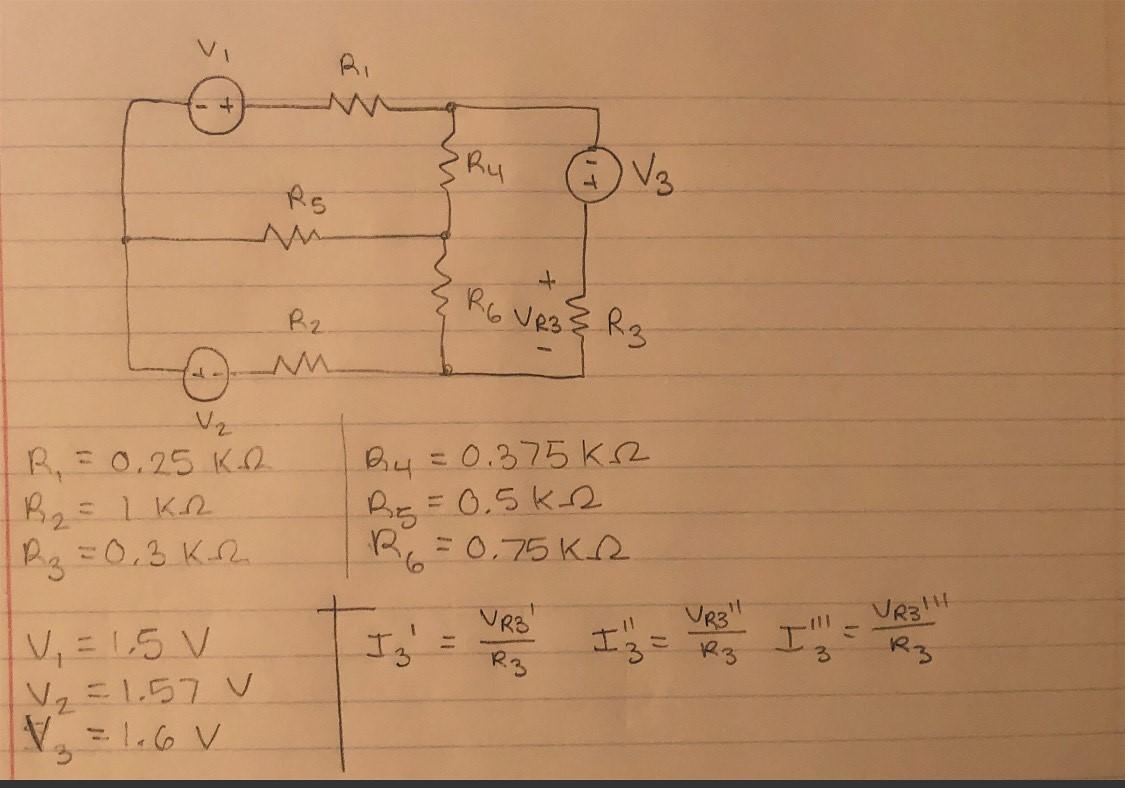 V1
R1
- +
R4
- +
V3
R5
+
R6 VR3 R3
-
R2
+ -
V2
R1 = 0.25 KΩ
R2 = 1 KΩ
R3 = 0.3 KΩ
R4 = 0.375 KΩ
R5 = 0.5 KΩ
R6 = 0.75 KΩ
V1 = 1.5 V
V2 = 1.57 V
V3 = 1.6 V
I3' = VR3'/R3 I3'' = VR3''/R3 I3''' = VR3'''/R3